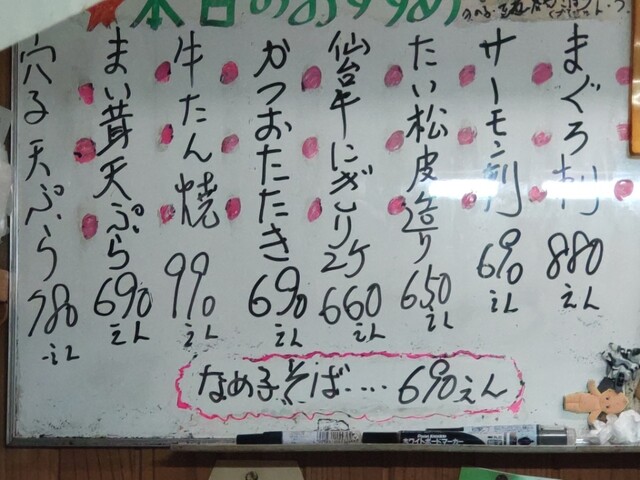 本日のおすすめ
まぐろ刺 880えん
サーモン刺 690えん
たい松皮造り 650えん
仙台牛にぎり2ケ 660えん
かつおたたき 690えん
牛たん焼 990えん
まい茸天ぷら 690えん
穴子天ぷら 980えん
なめ子そば‥‥690えん
ホワイトボードマーカー